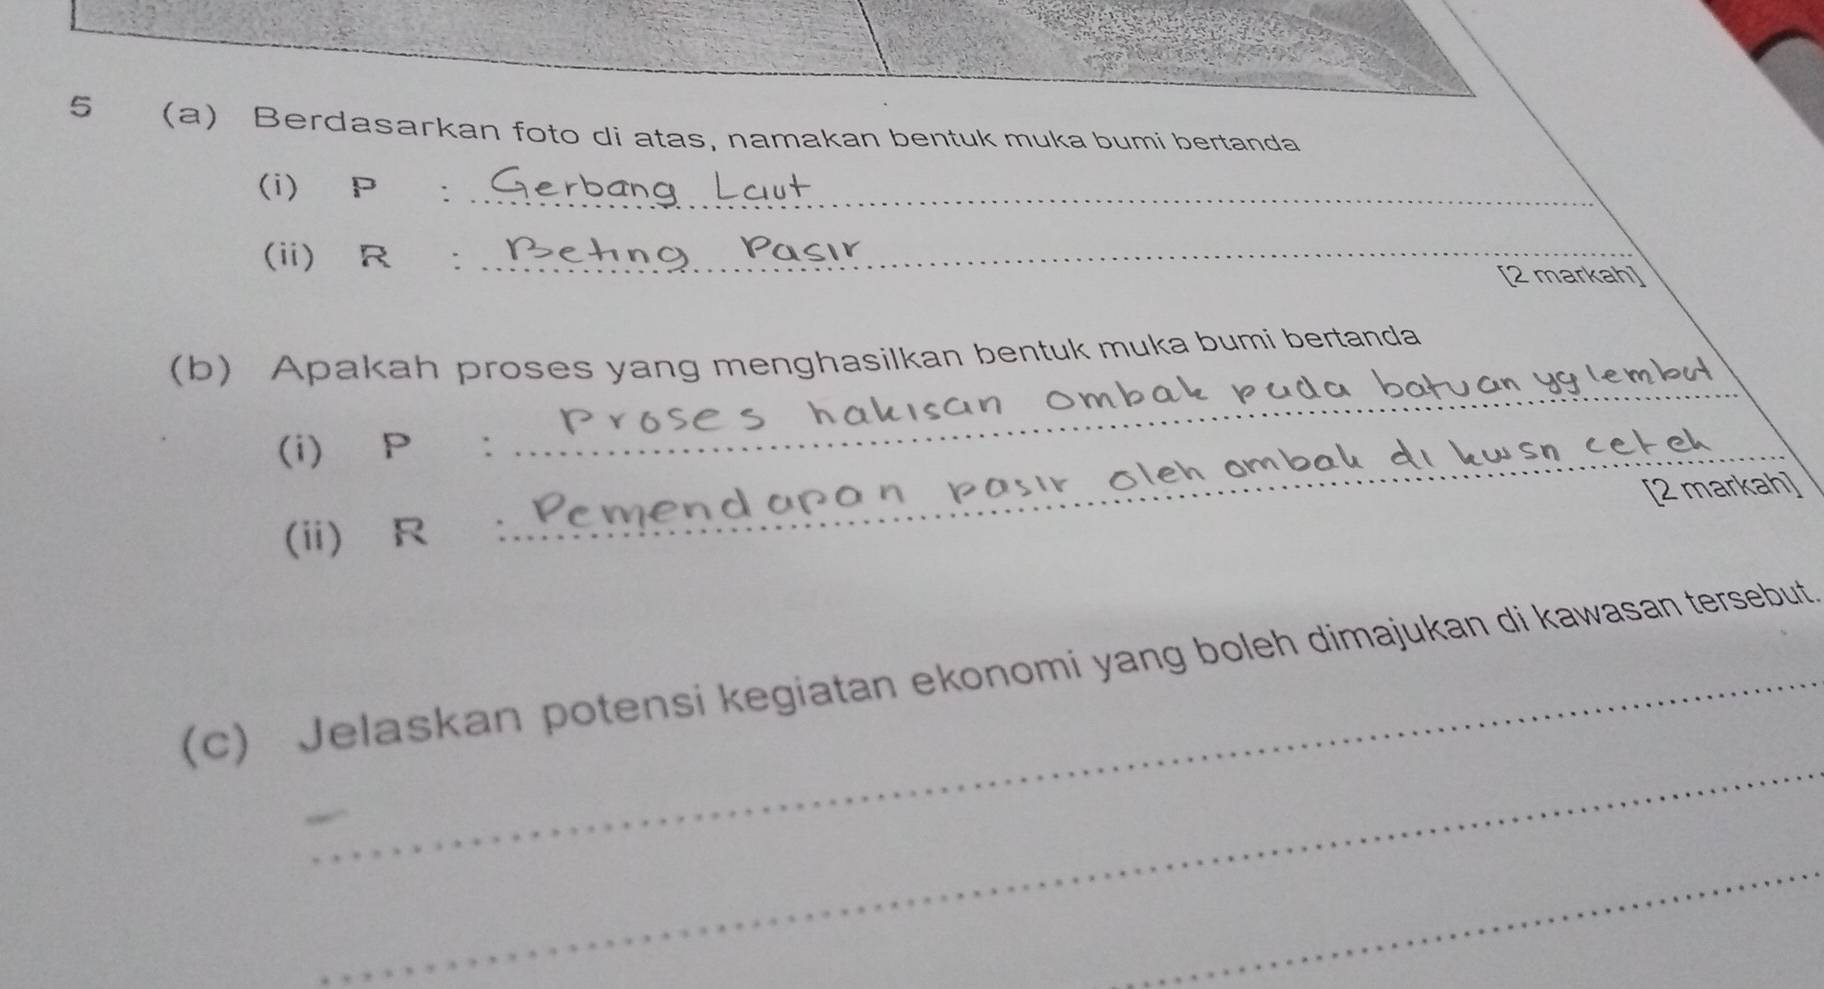 5 (a) Berdasarkan foto di atas, namakan bentuk muka bumi bertanda
(i) P : Gerbang Laut
(ii) R : Beting Pasir
[2 markah]
(b) Apakah proses yang menghasilkan bentuk muka bumi bertanda
(i) P : Proses hakisan ombak pada batuan yg lembut
(ii) R : Pemendapan pasir oleh ombak di kwsn cetek
[2 markah]
(c) Jelaskan potensi kegiatan ekonomi yang boleh dimajukan di kawasan tersebut.